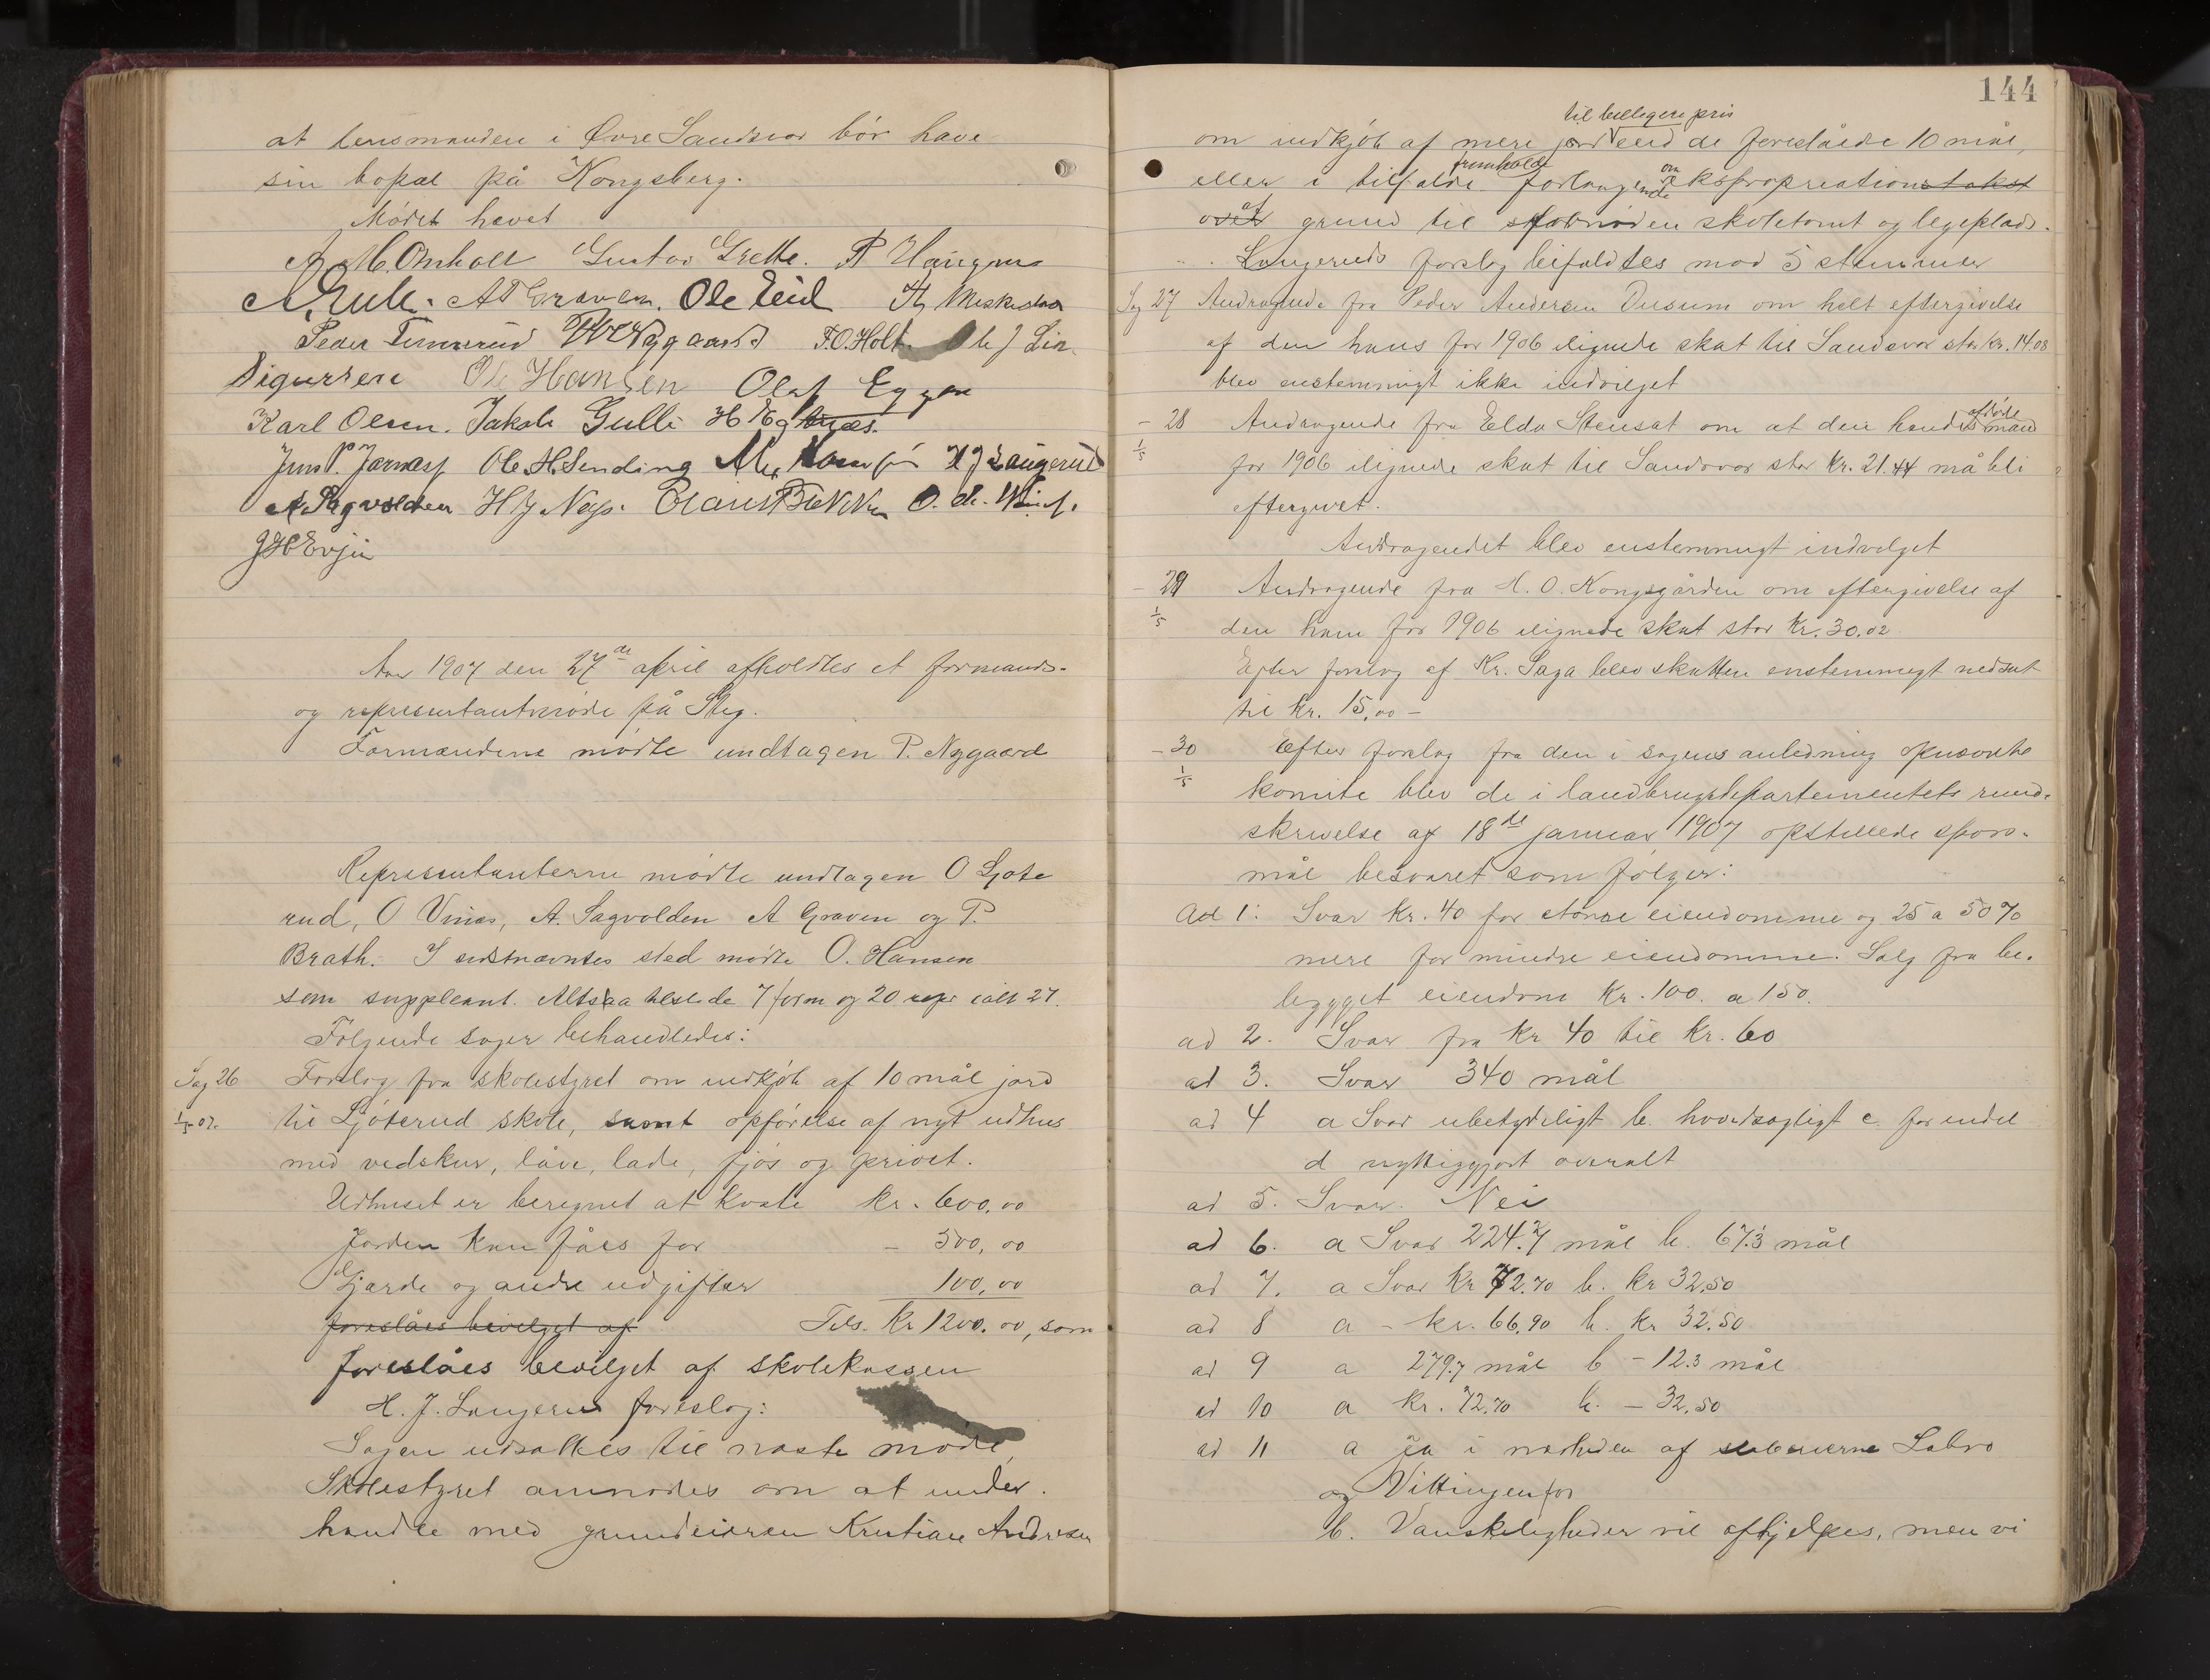 at lensmanden i Øvre Sandsvær bør have
sin bopæl på Kongsberg.
Mødet hævet
A. M. Omholt Gustav Grette. P Haugen
A T Graven. Ole Eid Th Meskestad
Peder Temmerud P Nyggaard T.O. Holt Ole J Lia
Sigurdsen Ole Hansen Olaf Eggen
Karl Olsen. Jakob Gulli
Jens P. Jarnæs Ole H. Sending H J Laugerud
A. Sagvolden H J Næss. O. Chr.
J H Evju
Aar 1907 den 27de april afholdtes et formands-
og representantmøde på Steg.
Formændene mødte undtagen P. Nygaard
Representanterne mødte undtagen O Ljøte
rud, O Vinæs, A. Sagvolden A Graven og P.
Bråth. I sidstnævntes sted mødte O. Hansen
som suppleant. Altsaa tilstede 7 form og 20 repr ialt 27.
Følgende sager behandledes:
Sag 26 Forslag fra skolestyret om indkjøb af 10 mål jord
1/5 07. til Ljøterud skole, samt opførelse af nyt udhus
med vedskur, låve, lade, fjøs og privet.
Udhuset er beregnet at koste kr. 600,00
Jorden kan fåes for – 500,00
Gjærde og andre udgifter 100,00
foreslåes bevilget af Tils. Kr 1200.00, som
foreslåes bevilget af skolekassen
H. J. Langerud foreslog:
Sagen udsættes til næste møde,
Skolestyret anmodes om at under-
handle med grundeieren Kristian Andersen
144
til billigere pris
om indkjøb af mere jord end de foreslåede 10 mål,
fremholde om
eller i tilfælde forlangende ekspropreationstakst
af
over grund til skoletomt og legeplads.
Langeruds forslag bifaldtes mod 5 stemmer
Sag 27 Andragende fra Peder Andersen Dusum om helt eftergivelse
af den hans for 1906 ilignede skat til Sandsvær stor kr. 14.08
blev enstemmigt ikke indvilget
afdøde
– 28 Andragende fra Elda Stensæt om at den hendes mand
1/5 for 1906 ilignede skat til Sandsvær stor kr. 21.44 må bli
eftergivet.
Andragendet blev enstemmigt indvilget
– 29 Andragende fra H. O. Kongsgården om eftergivelse af
1/5 den ham for 1906 ilignede skat stor kr. 30.02
Efter forslag af Kr. Saga blev skatten enstemmigt nedsat
til kr. 15,00 –
– 30 Efter forslag fra den i sagens anledning opnævnte
1/5 komite blev de i landbrugsdepartementets rund-
skrivelse af 18de januar 1907 opstillede spørs-
mål besvaret som følger:
Ad 1. Svar kr. 40 for større eiendomme og 25 a 50%
mere for mindre eiendomme. Salg fra be-
bygget eiendom kr. 100. a 150.
ad 2. Svar fra kr 40 til kr. 60
ad 3. Svar 340 mål
ad 4 a Svar ubetydeligt b. hovedsagligt c for endel
d nyttiggjort overalt
ad 5. Svar. Nei
ad 6. a Svar 224.7 mål b. 67.3 mål
ad 7. a Svar kr 72.70 b. kr 32.50
ad 8 a – kr. 66.90 b. kr 32.50
ad 9 a 279.7 mål b – 12.3 mål
ad 10 a kr. 72.70 b. – 32.50
ad 11 a Ja i nærheden af sliberierne Labro
og Vittingenfos
b. Vanskeligheder vil afhjelpes, men vi